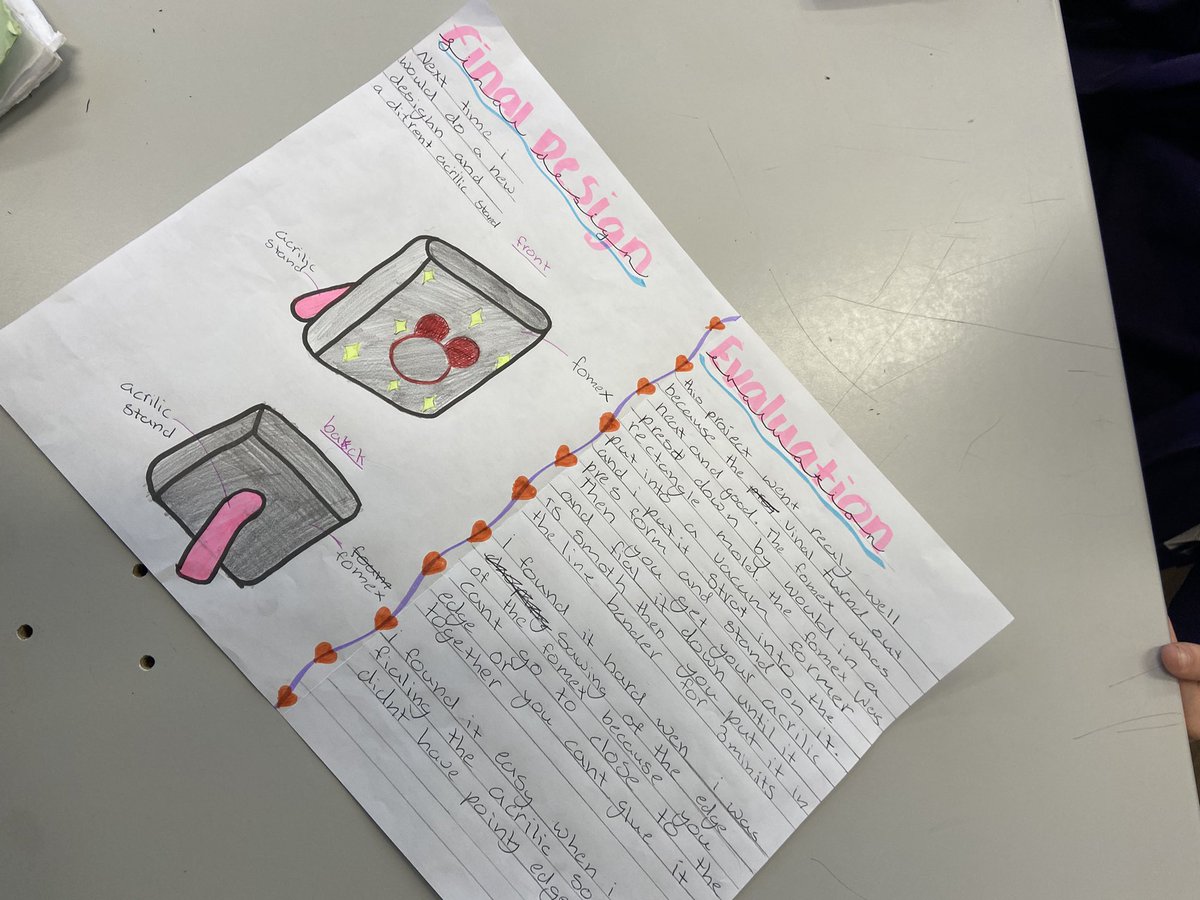 Final Design
final design
Next time i
would do a new
desighn and
a difrent acrilic stand
front
acrilic
stand
fomex
back
acrilic
stand
fomex
Evaluation
Evaluation
this project went realy well
because the vinal turnd out
neat and good. The fomex whas
presd down by would in a
rectangle mold the fomex was
put into a vacum former
and i put strat into it.
pres form and stand on the
Then you get your acrilic
and fial it down until it
is smoth then you put it in
the line bender for 2minits
i found it hard wen i was
sowing of the edge
of the fomex because you
cant go to close to the
edge or you cant glue it
together
i found it easy when i
fialing the acrilic so
didnt have pointy edge